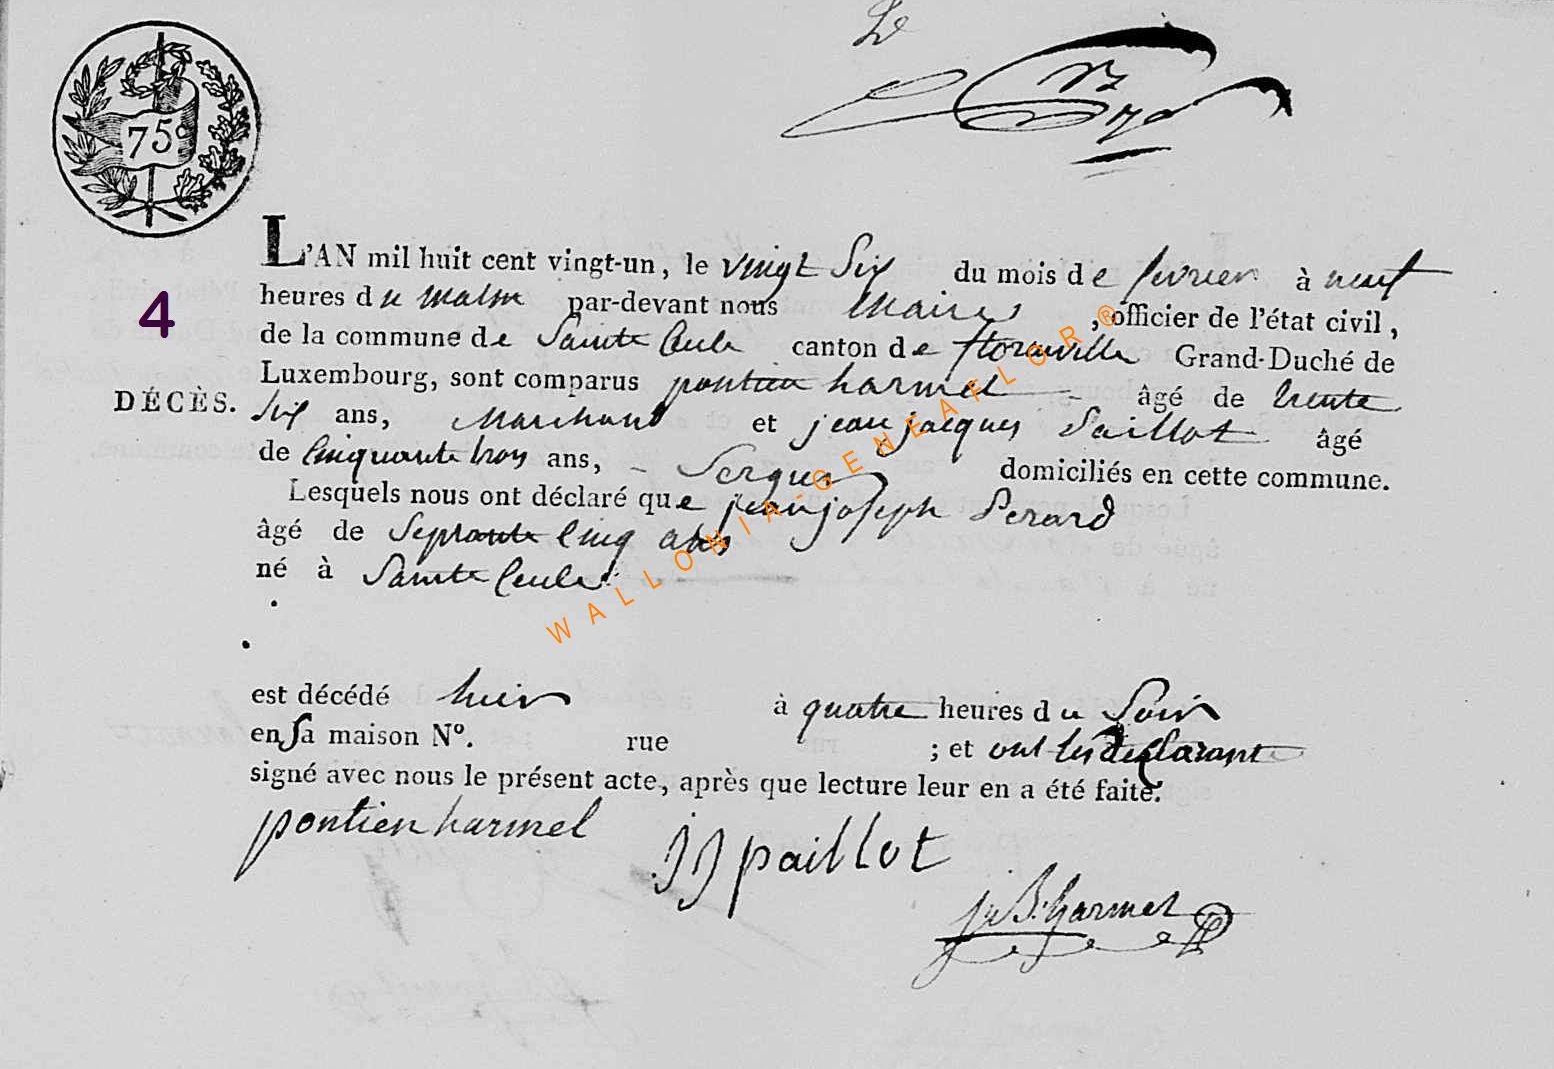 75c
4
L'AN mil huit cent vingt-un, le vingt Six du mois de fevrier à neuf
heures du matin par-devant nous Maire, officier de l'état civil,
de la commune de Sainte Cecile canton de florenville Grand-Duché de
Luxembourg, sont comparus pontien harmel âgé de trente
DÉCÈS.
six ans, Marchand et jean jacques Paillot âgé
de Cinquante trois ans, Serger domiciliés en cette commune.
Lesquels nous ont déclaré que jean joseph Perard
âgé de Septante Cinq ans
né à Sainte Cecile
est décédé hier à quatre heures du Soir
en Sa maison N°. rue ; et ont les declarant
signé avec nous le présent acte, après que lecture leur en a été faite.
pontien harmel
jj paillot
j B: harmel
WALLONIA-GENEAFLOR®